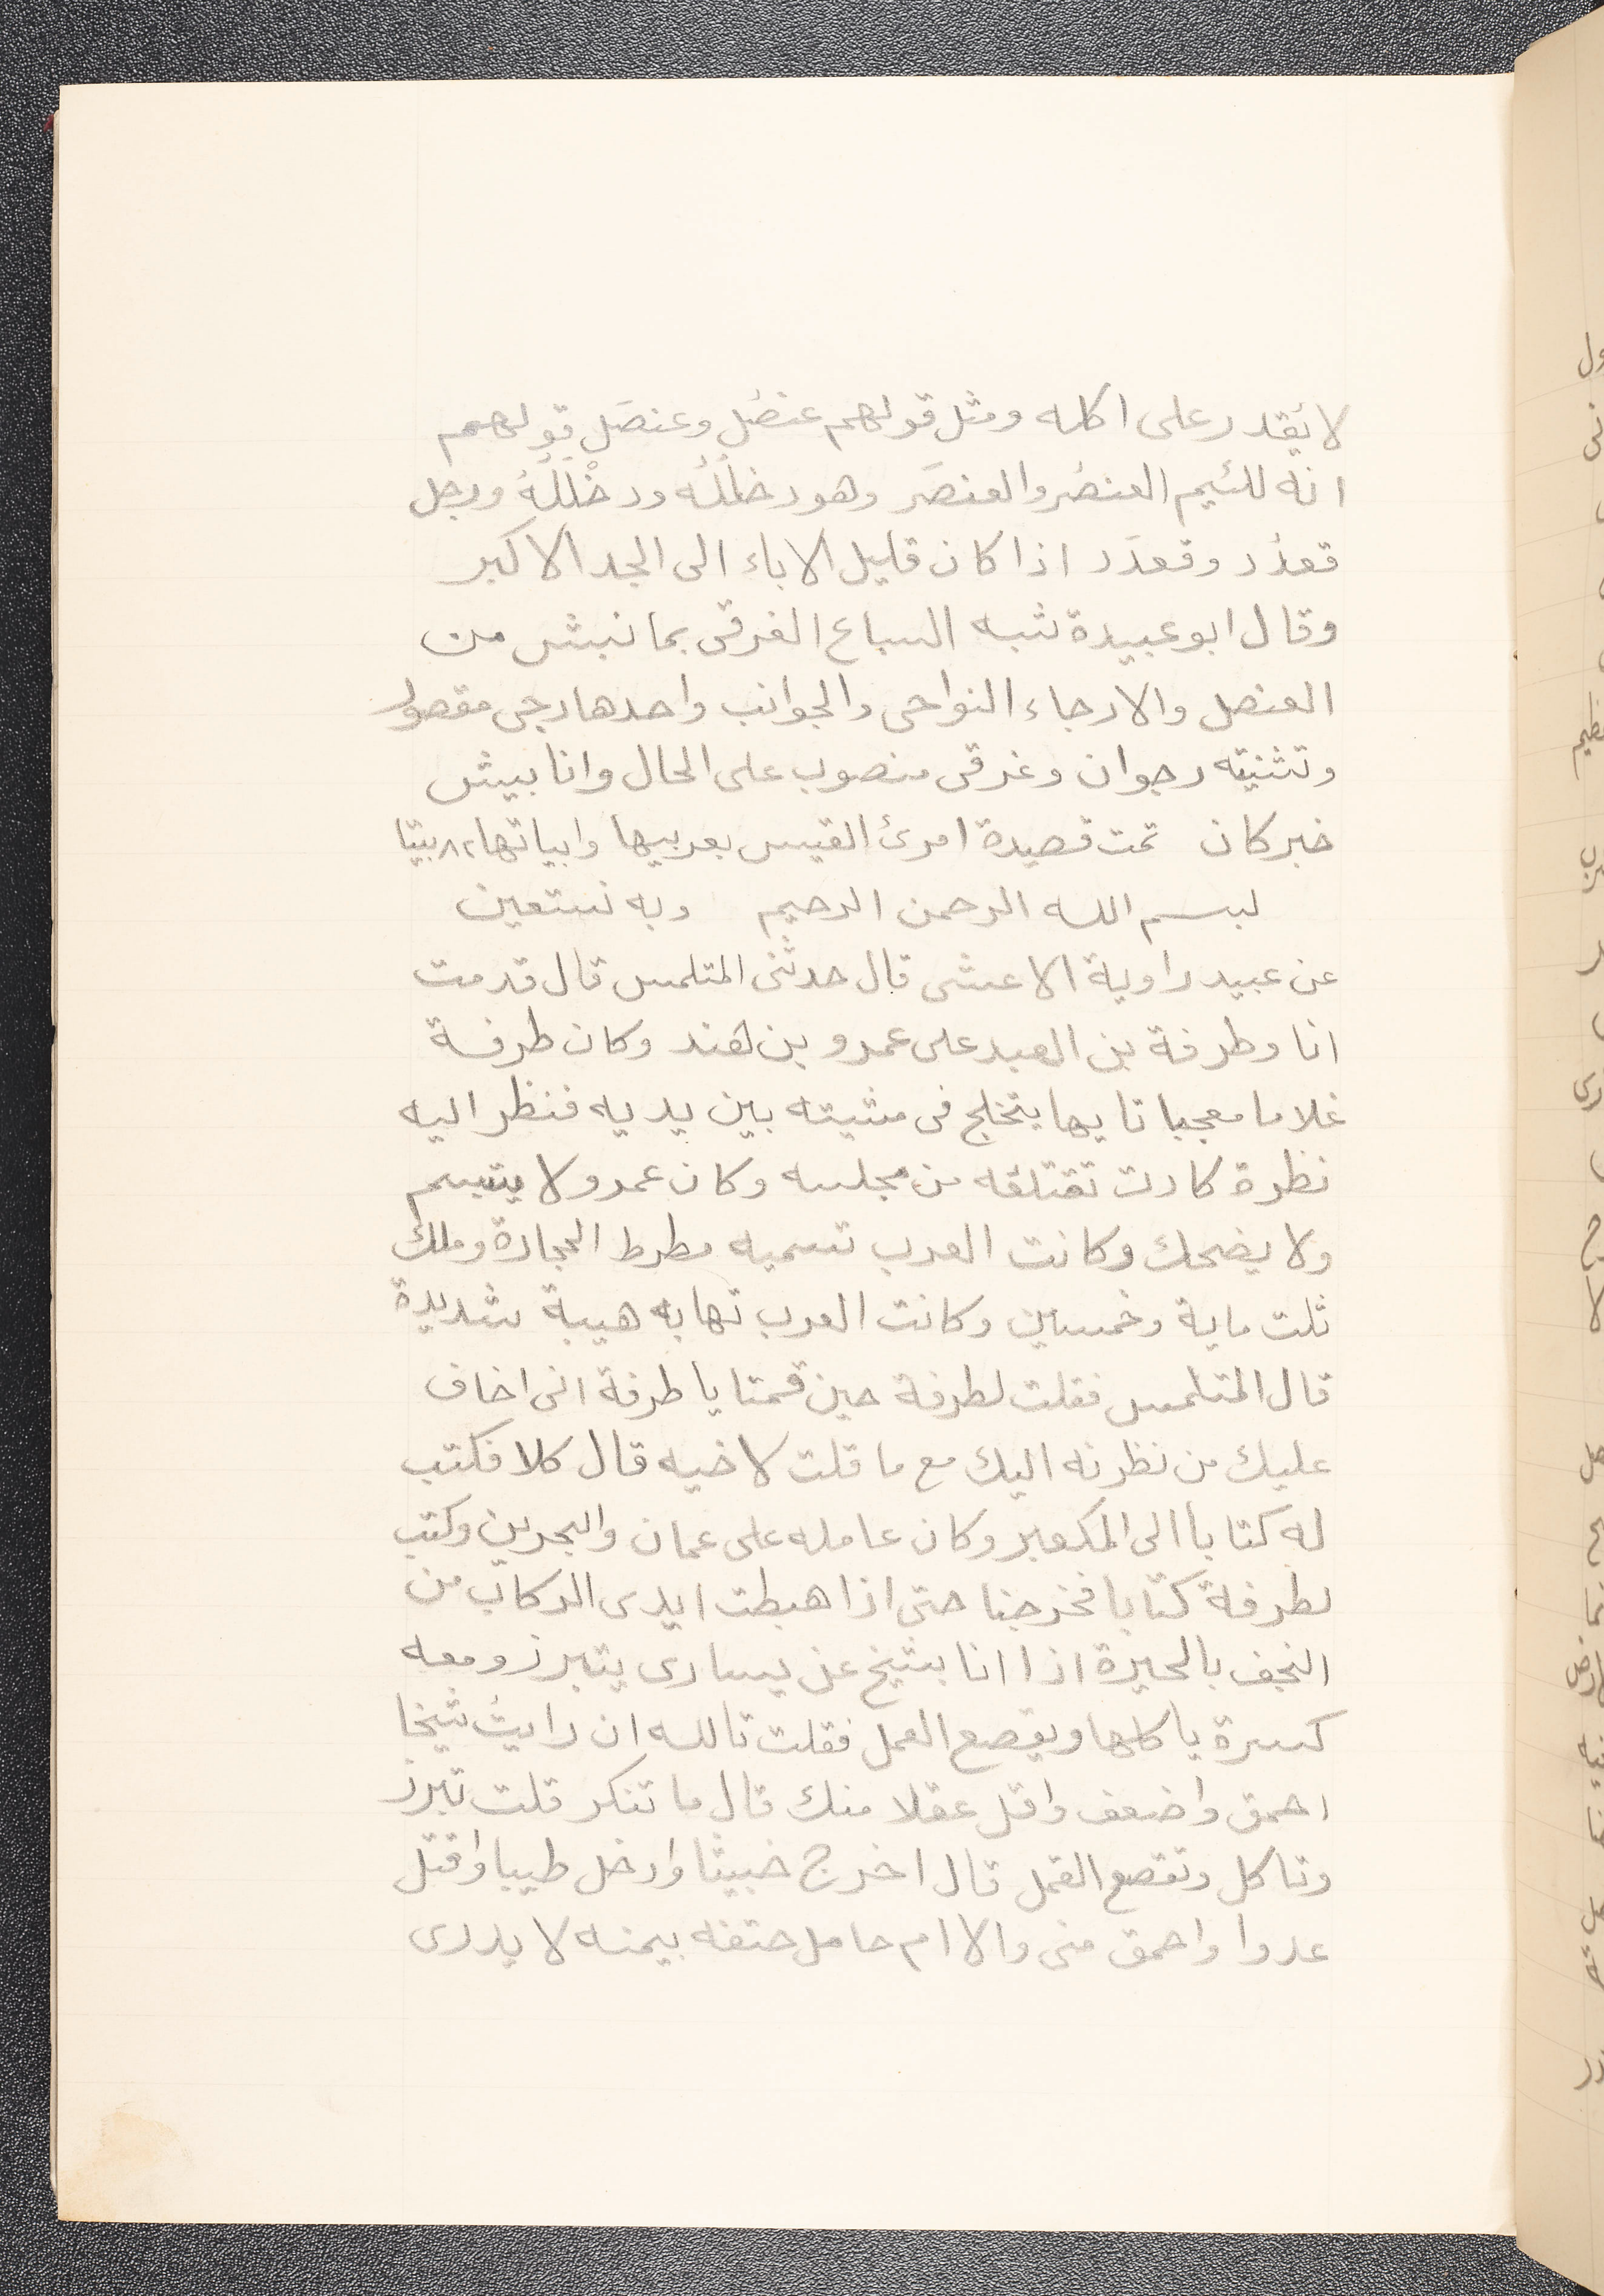 لا يُقدر على اكله ومثل قولهم عنصُل وعنصَل قولهم
انه للئيم العنصُر والعنصَر وهو دخلُلُه ودخْلَلُهُ ورجل
قعدُد وقعدَد اذا كان قليل الاباء الى الجد الاكبر
وقال ابو عبيدة شبه السباع الغرقى بما نبش من
العنصل والارجاء النواحى والجوانب واحدها رجى مقصور
وتثنيته رجوان وغرقى منصوب على الحال وانابيش
خبر كان تمت قصيدة امرئ القيس بعربيها وابياتها ٨٢ بيتا
بسم الله الرحمن الرحيم وبه نستعين
عن عبيد راوية الاعشى قال حدثنى المتلمس قال قدمت
انا وطرفة بن العبد على عمرو بن هند وكان طرفة
غلاما معجبا تايها يتخلج فى مشيته بين يديه فنظر اليه
نظرة كادت تقتلقه من مجلسه وكان عمرو لا يتبسم
ولا يضحك وكانت العرب تسميه مطرط الحجارة وملك
ثلت ماية وخمسين وكانت العرب تهابه هيبة شديدة
قال المتلمس فقلت لطرفة حين قمتا يا طرفة انى اخاف
عليك من نظرته اليك مع ما قلت لاخيه قال كلا فكتب
له كتابا الى المكعبر وكان عامله على عمان والبحرين وكتب
لطرفة كتابا فخرجنا حتى اذا هبطت ايدى الركاب من
النجف بالحيرة اذا انا بشيخ عن يسارى يتبرز ومعه
كسرة ياكلها ويقصع القمل فقلت تالله ان رايتُ شيخا
احمق واضعف واقل عقلا منك قال ما تنكر قلت تبرز
وتاكل وتقصع القمل قال اخرج خبيثا وادخل طيبا واقتل
عدوا واحمق منى والاام حامل حتفه بيمنه لا يدرى